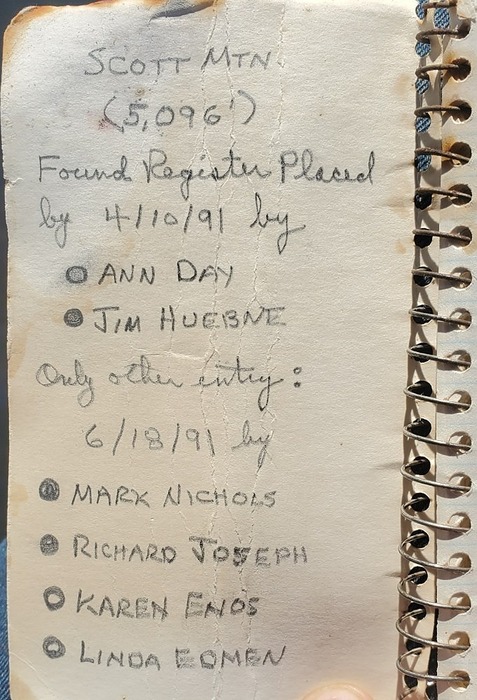 SCOTT MTN.
(5,096')
Found Register Placed
by 4/10/91 by
ANN DAY
JIM HUEBNE
Only other entry:
6/18/91 by
MARK NICHOLS
RICHARD JOSEPH
KAREN ENOS
LINDA EDMEN